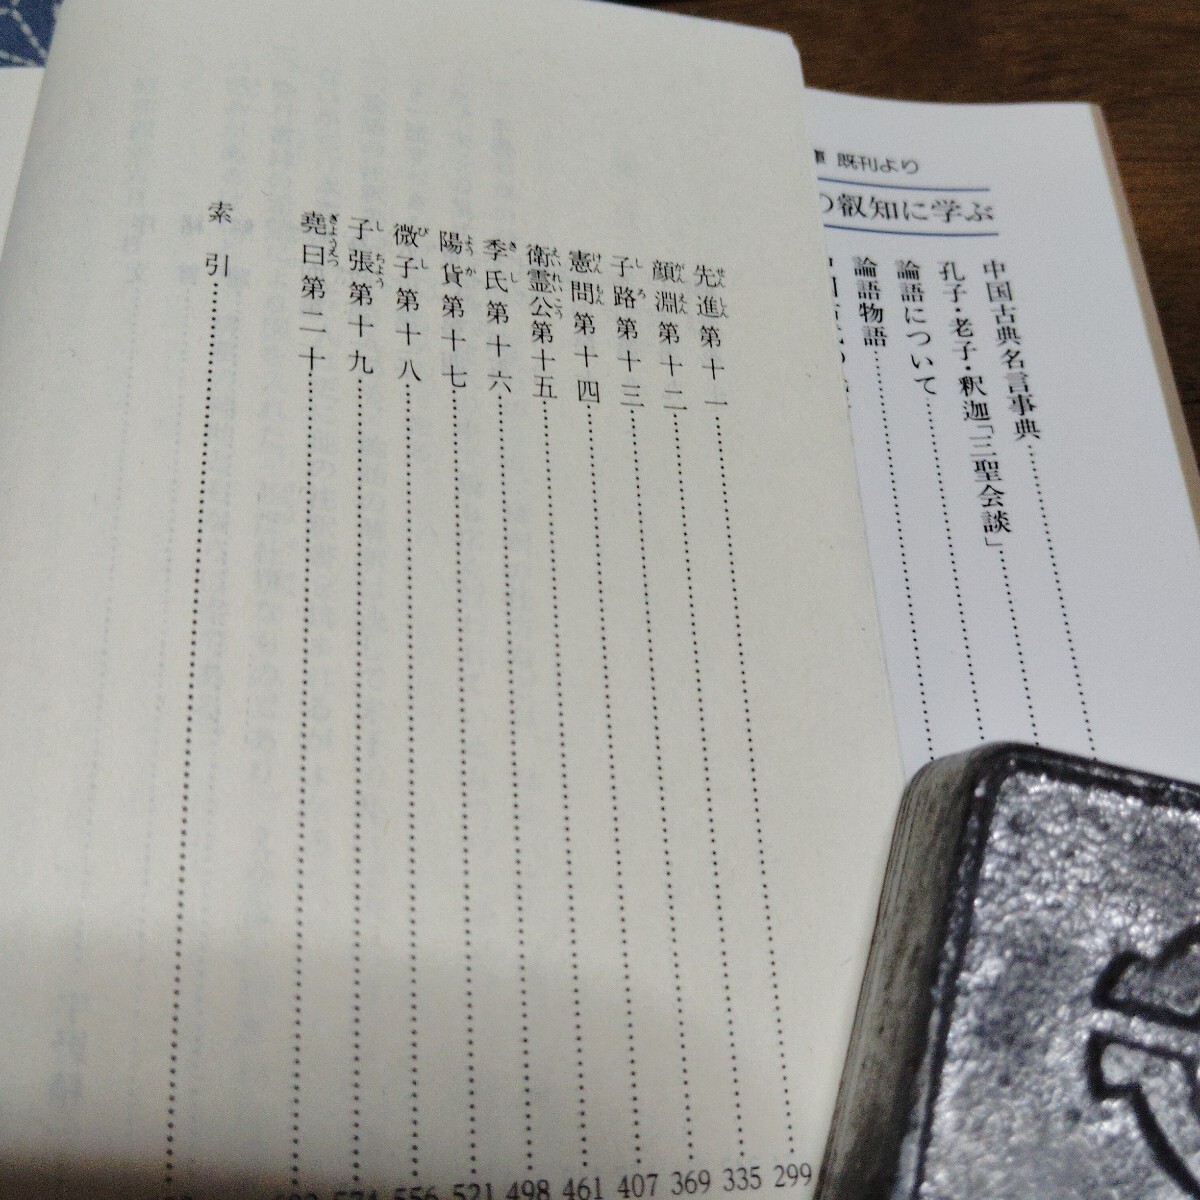 既刊より
の叡知に学ぶ
中国古典名言事典
孔子・老子・釈迦「三聖会談」
論語について
論語物語
先進第十一 299
顔淵第十二 335
子路第十三 369
憲問第十四 407
衛霊公第十五 461
季氏第十六 498
陽貨第十七 521
微子第十八 556
子張第十九
堯曰第二十
索引